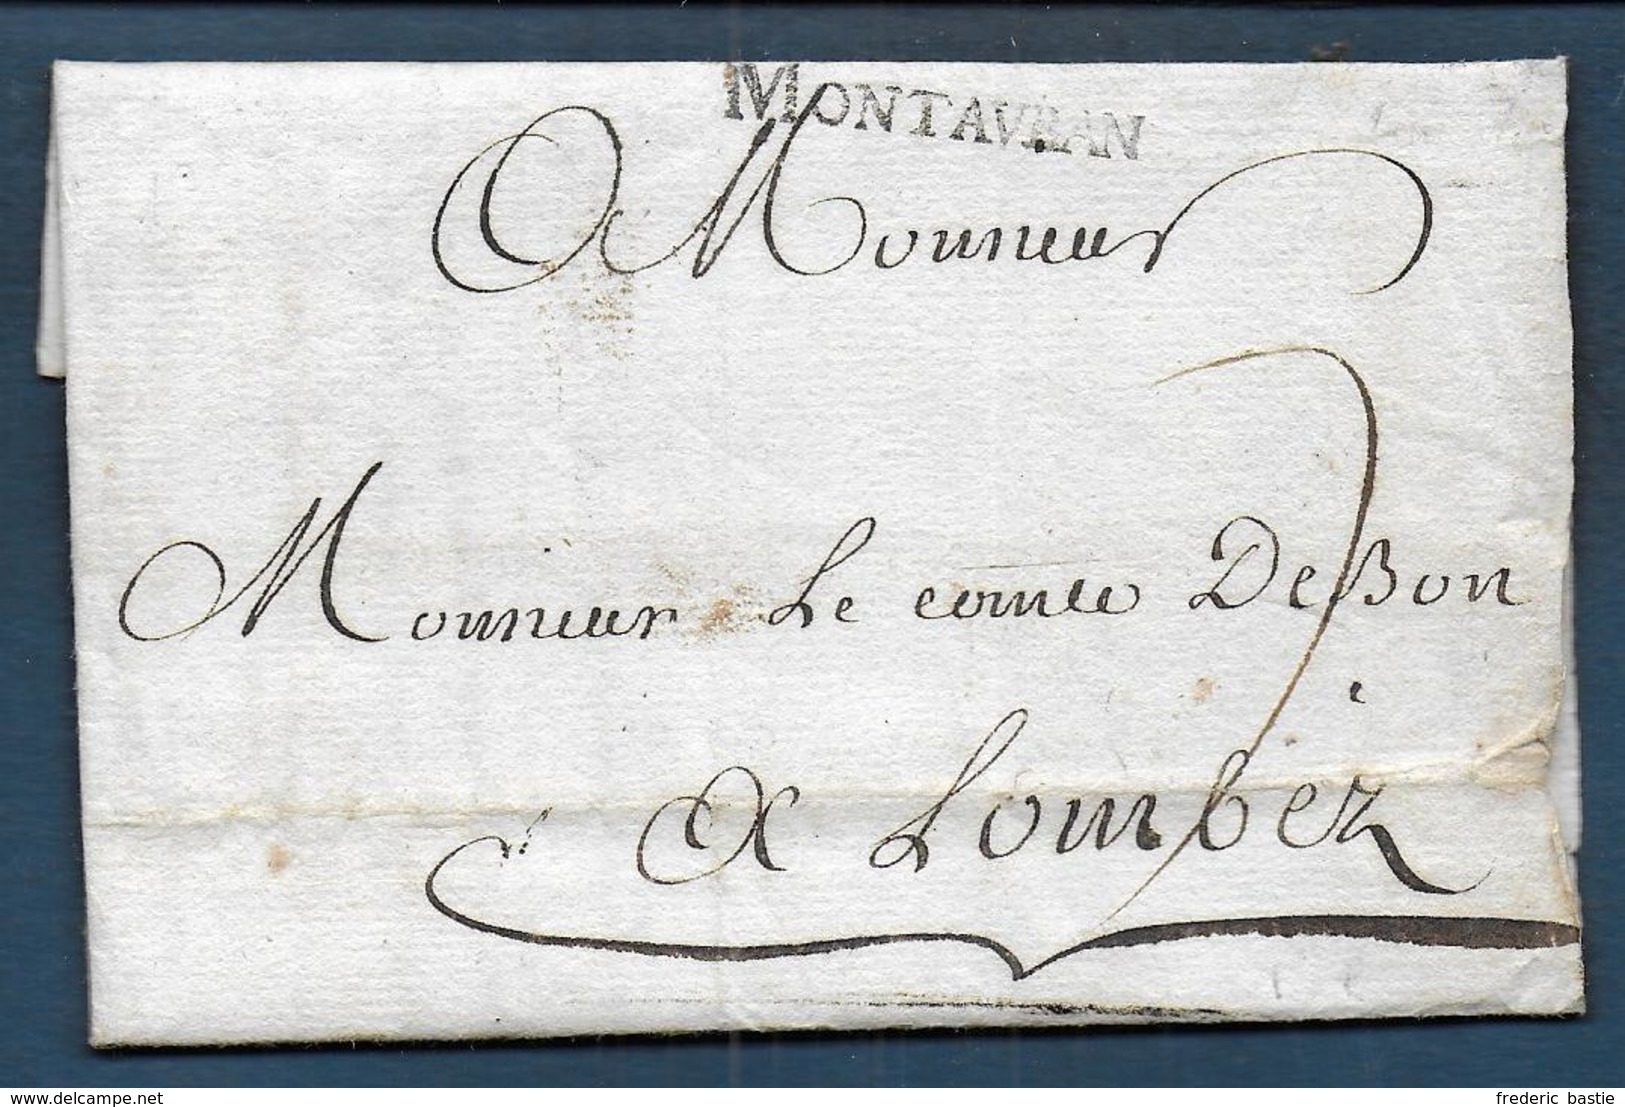 MONTAVBAN
A Monsieur
Monsieur Le comte De Bon
A Lombéz
www.delcampe.net
frederic bastie